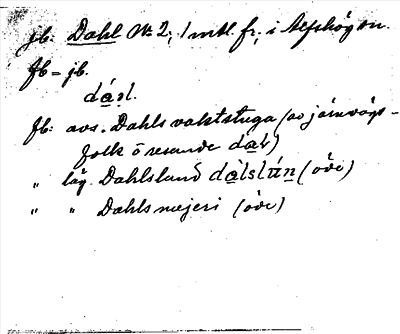 jb: Dahl No 2; 1 mtl. fr; i Alfshög sn.
Jb = jb.
dá̱əl.
Jb: avs. Dahls vaktstuga (av järnvägs-
folk o resande da̱l)
„ läg. Dahlslund da̱lslúṉ (öde)
„ „ Dahls mejeri (öde)